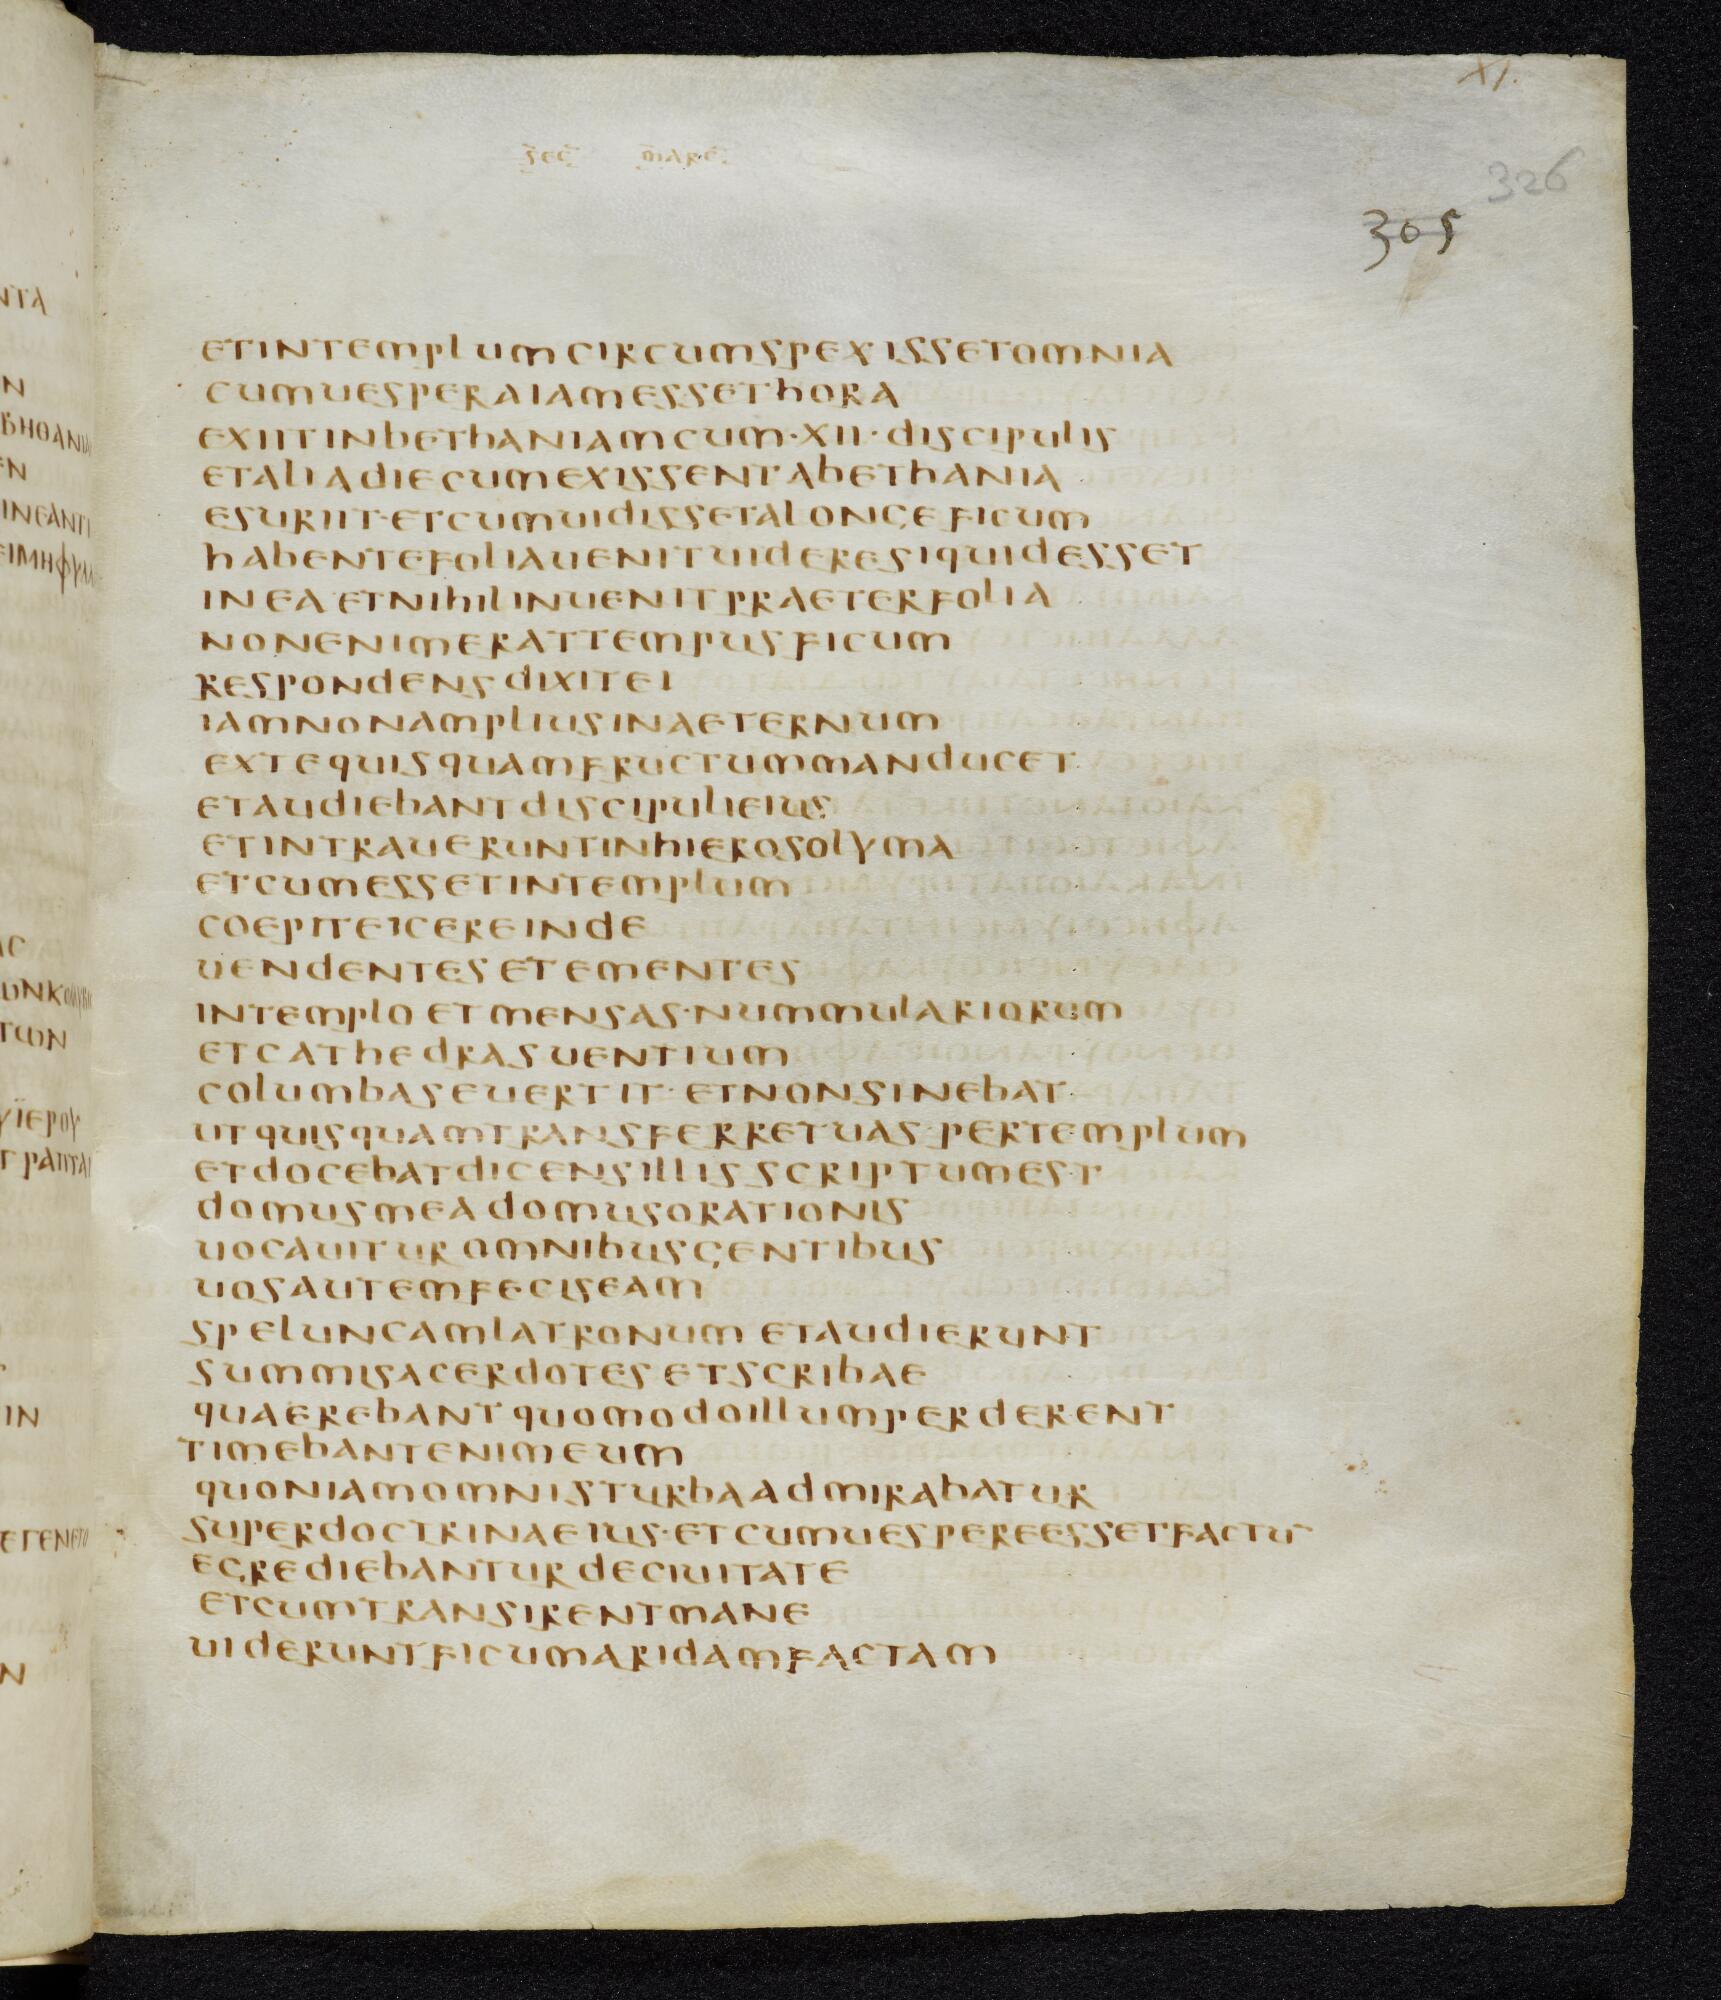 XI.
326
sec marc
305
ET IN TEMPLUM CIRCUMSPEXISSET OMNIA
CUM UESPERA IAM ESSET HORA
EXIIT IN BETHANIAM CUM·XII·DISCIPULIS
ET ALIA DIE CUM EXISSENT A BETHANIA
ESURIIT·ET CUM UIDISSET A LONGE FICUM
HABENTE FOLIA UENIT UIDERE SI QUID ESSET
IN EA ET NIHIL INUENIT PRAETER FOLIA
NON ENIM ERAT TEMPUS FICUM
RESPONDENS DIXIT EI
IAM NON AMPLIUS IN AETERNUM
EX TE QUISQUAM FRUCTUM MANDUCET
ET AUDIEBANT DISCIPULI EIUS
ET INTRAUERUNT IN HIEROSOLYMA
ET CUM ESSET IN TEMPLUM
COEPIT EICERE INDE
UENDENTES ET EMENTES
IN TEMPLO ET MENSAS·NUMMULARIORUM
ET CATHEDRAS UENTIUM
COLUMBAS EUERTIT·ET NON SINEBAT
UT QUISQUAM TRANSFERRET UAS PER TEMPLUM
ET DOCEBAT DICENS ILLIS SCRIPTUM EST
DOMUS MEA DOMUS ORATIONIS
UOCAUITUR OMNIBUS GENTIBUS
UOS AUTEM FECIS EAM
SPELUNCAM LATRONUM ET AUDIERUNT
SUMMI SACERDOTES ET SCRIBAE
QUAEREBANT QUOMODO ILLUM PERDERENT
TIMEBANT ENIM EUM
QUONIAM OMNIS TURBA ADMIRABATUR
SUPER DOCTRINA EIUS·ET CUM UESPERE ESSET FACTŪ
EGREDIEBANTUR DE CIUITATE
ET CUM TRANSIRENT MANE
UIDERUNT FICUM ARIDAM FACTAM